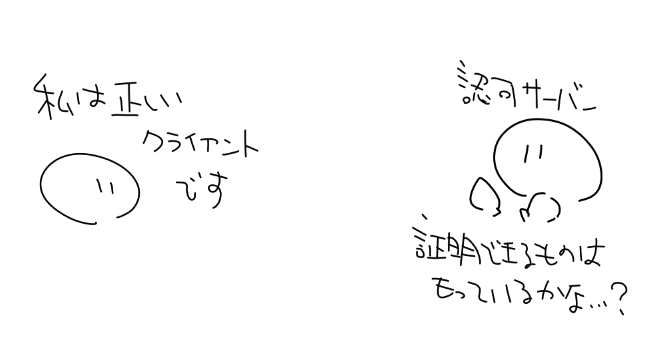 私は正しい
クライアント
です
認可サーバー
証明できるものは
もっているかな...?